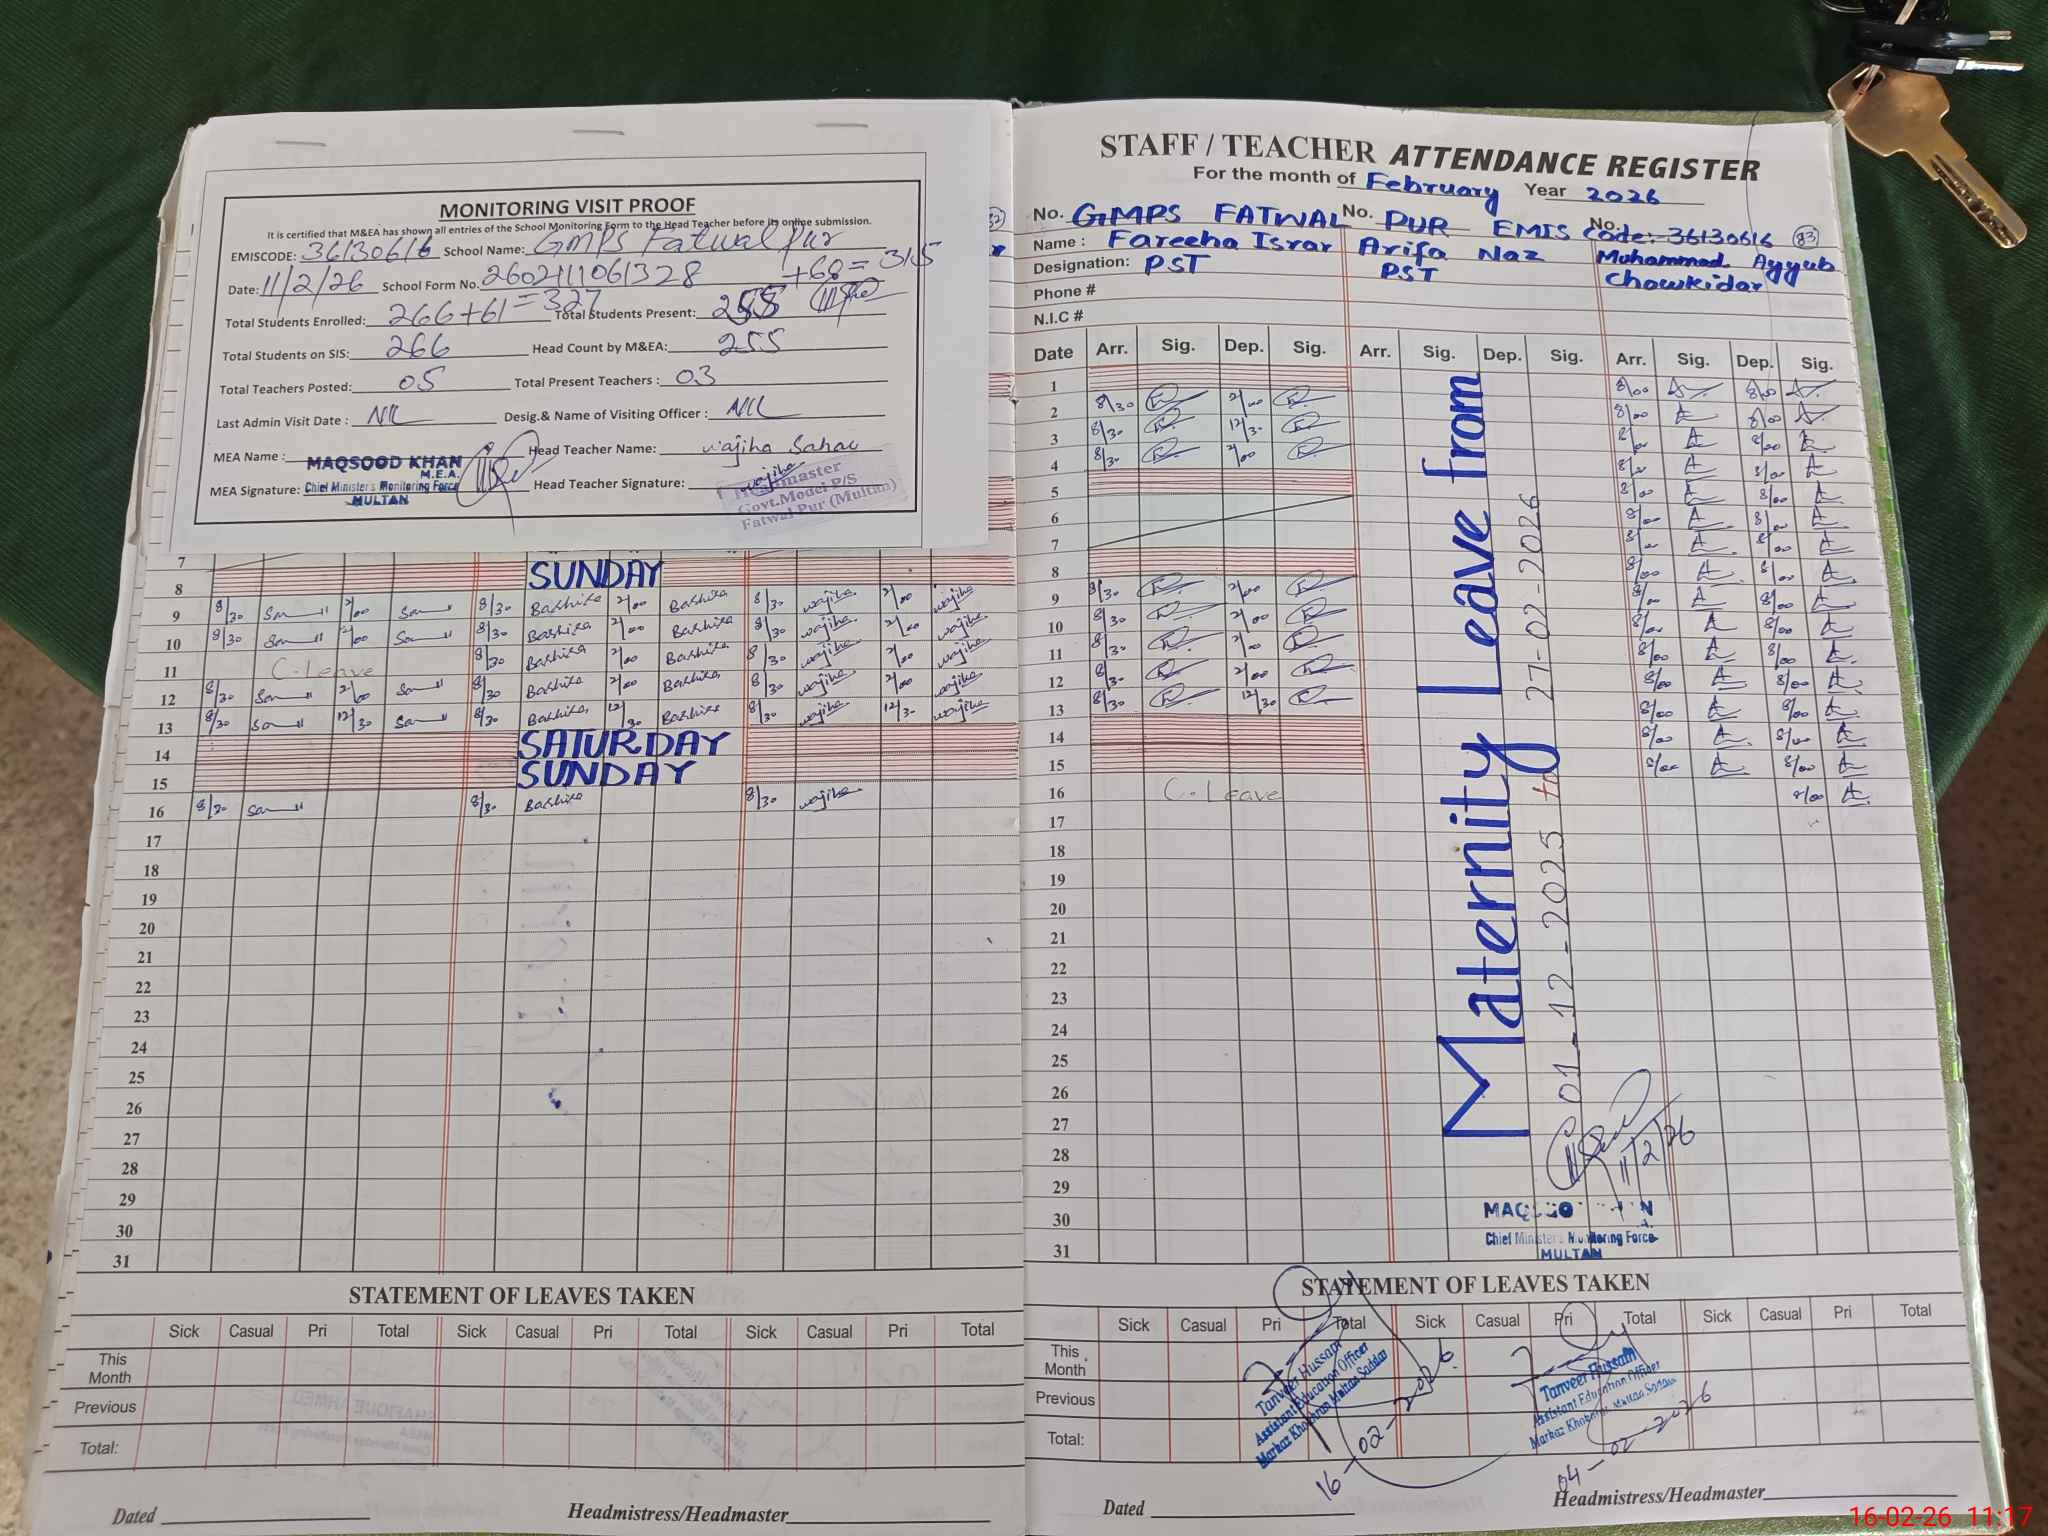 MONITORING VISIT PROOF
It is certified that M&EA has shown all entries of the School Monitoring Form to the Head Teacher before its online submission.
EMISCODE: 36130616 School Name: GMPS Fatwal pur
Date: 11/2/26 School Form No. 260211061328 +60 = 315
Total Students Enrolled: 266+61=327 Total Students Present: 255
Total Students on SIS: 266 Head Count by M&EA: 255
Total Teachers Posted: 05 Total Present Teachers : 03
Last Admin Visit Date : NIL Desig.& Name of Visiting Officer : NIL
MEA Name : MAQSOOD KHAN Head Teacher Name: wajiha Sahar
M.E.A.
MEA Signature: Chief Minister's Monitoring Force Head Teacher Signature: wajiha
MULTAN
Headmaster
Govt.Model P/S
Fatwal Pur (Multan)
7
8 SUNDAY
9 8/30 2/00 8/30 Bashira 2/00 Bashira 8/30 wajiha 2/00 wajiha
10 8/30 2/00 8/30 Bashira 2/00 Bashira 8/30 wajiha 2/00 wajiha
11 C.Leave 8/30 Bashira 2/00 Bashira 8/30 wajiha 2/00 wajiha
12 8/30 2/00 8/30 Bashira 2/00 Bashira 8/30 wajiha 2/00 wajiha
13 8/30 12/30 8/30 Bashira 12/30 Bashira 8/30 wajiha 12/30 wajiha
14 SATURDAY
15 SUNDAY
16 8/30 8/30 Bashira 8/30 wajiha
17
18
19
20
21
22
23
24
25
26
27
28
29
30
31
STATEMENT OF LEAVES TAKEN
Sick Casual Pri Total Sick Casual Pri Total Sick Casual Pri Total
This Month
Previous
Total:
Dated Headmistress/Headmaster
STAFF / TEACHER ATTENDANCE REGISTER
For the month of February Year 2026
No. GMPS FATWAL No. PUR EMIS No. Code:- 36130616 83
Name : Fareeha Israr Arifa Naz Muhammad Ayyub
Designation: PST PST Chowkidar
Phone #
N.I.C #
Date Arr. Sig. Dep. Sig. Arr. Sig. Dep. Sig. Arr. Sig. Dep. Sig.
1 8/00 8/00
2 8/30 2/00 8/00 8/00
3 8/30 12/30 8/00 8/00
4 8/30 2/00 8/00 8/00
5 8/00 8/00
6 8/00 8/00
7 8/00 8/00
8 8/00 8/00
9 8/30 2/00 8/00 8/00
10 8/30 2/00 8/00 8/00
11 8/30 2/00 8/00 8/00
12 8/30 2/00 8/00 8/00
13 8/30 12/30 8/00 8/00
14 8/00 8/00
15 8/00 8/00
16 C.Leave 8/00
17
18
19
20
21
22
23
24
25
26
27
28
29
30
31
Maternity Leave from
01-12-2025 to 27-02-2026
11/2/26
Chief Minister's Monitoring Force
MULTAN
STATEMENT OF LEAVES TAKEN
Sick Casual Pri Total Sick Casual Pri Total Sick Casual Pri Total
This Month
Previous
Total:
Tanveer Hussain
Assistant Education Officer
Markaz Khokhran Multan Saddar
16-02-2026
Tanveer Hussain
Assistant Education Officer
Markaz Khokhran Multan Saddar
04-02-2026
Dated Headmistress/Headmaster
16-02-26 11:17